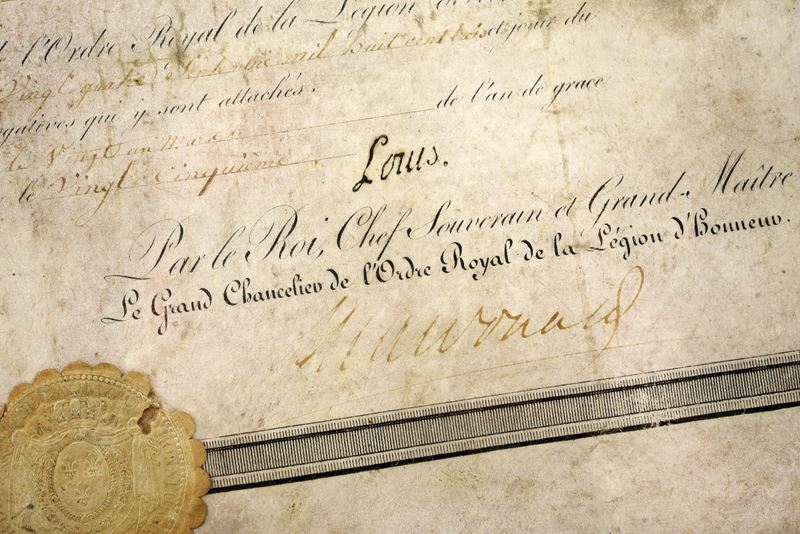 l'Ordre Royal de la Légion
Vingt quatre Septembre mil huit cent trois et jouir du
qui y sont attachés.
le Vingt un Mars de l'an de grace
le Vingt-Cinquième
Louis.
Par le Roi, Chef Souverain et Grand-Maître
Le Grand Chancelier de l'Ordre Royal de la Légion d'Honneur.
Macdonald